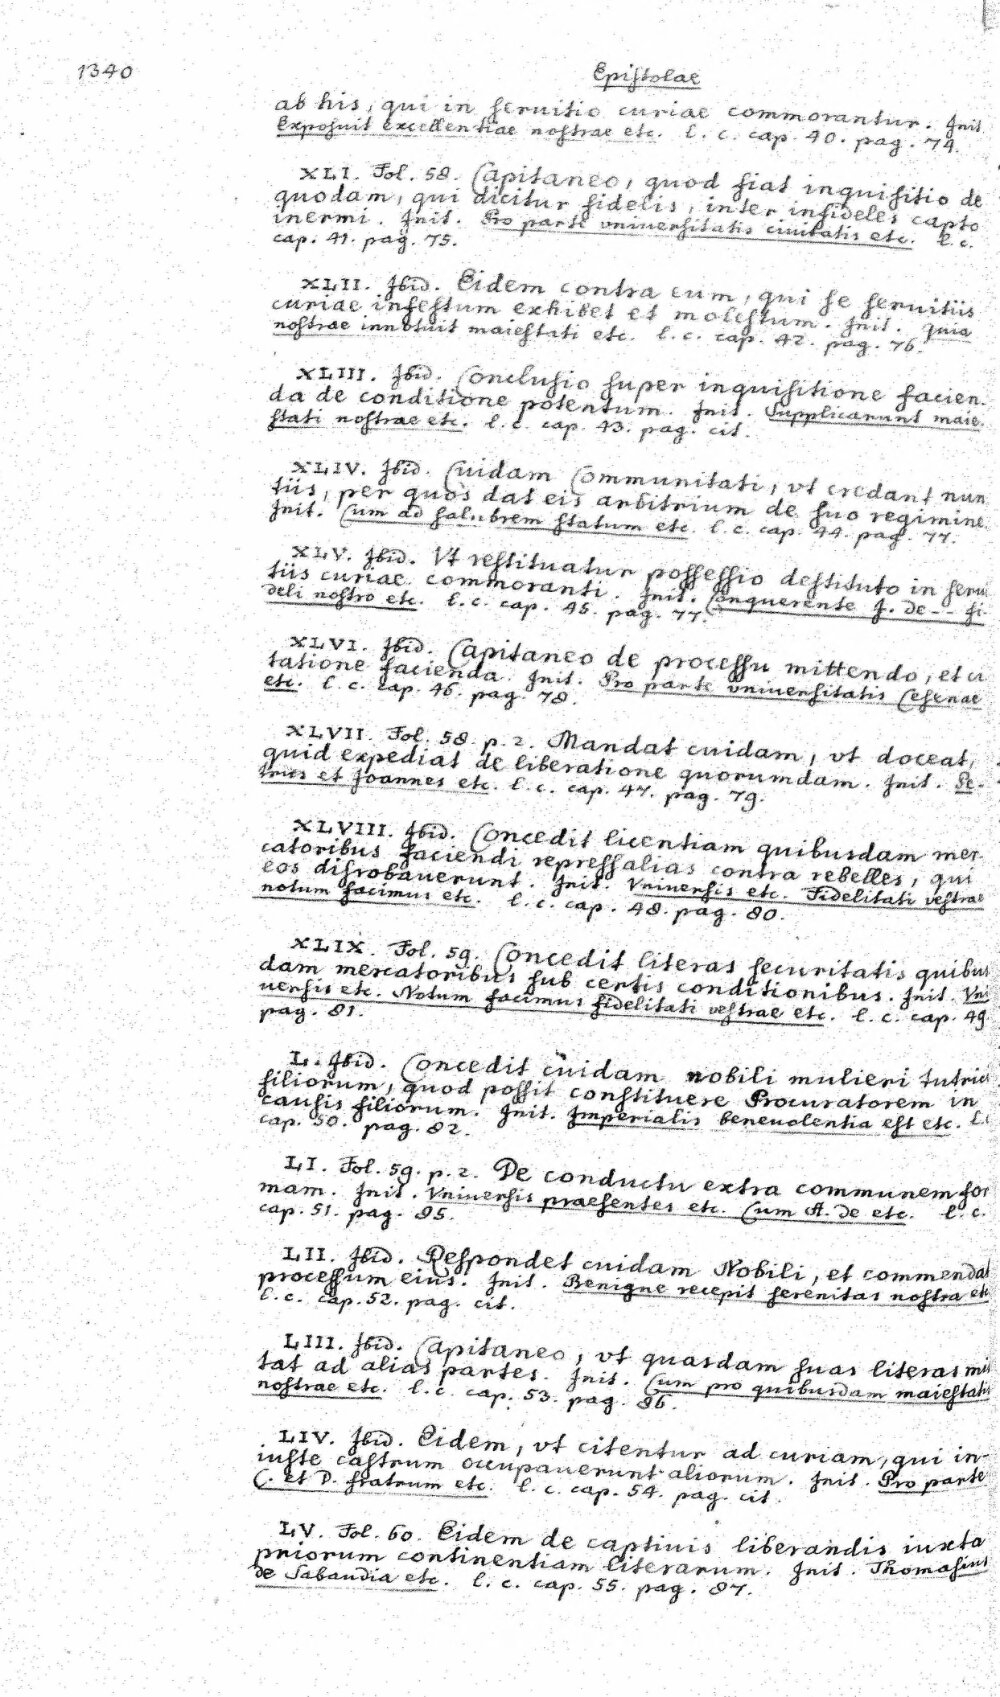 1340
Epistolae
ab his, qui in seruitio curiae commorantur. Init
Exposuit excellentiae nostrae etc. l. c. cap. 40. pag. 74.
XLI. Fol. 58. Capitaneo, quod fiat inquisitio de
quodam, qui dicitur fidelis, inter infideles capto
inermi. Init. Pro parte vniuersitatis ciuitatis etc. l. c.
cap. 41. pag. 75.
XLII. Ibid. Eidem contra eum, qui se seruitiis
curiae infestum exhibet et molestum. Init. Quia
nostrae innotuit maiestati etc. l. c. cap. 42. pag. 76.
XLIII. Ibid. Conclusio super inquisitione facien-
da de conditione potentum. Init. Supplicarunt maie-
stati nostrae etc. l. c. cap. 43. pag. cit.
XLIV. Ibid. Cuidam Communitati, vt credant nun
tiis, per quos dat eis arbitrium de suo regimine
Init. Cum ad salubrem statum etc. l. c. cap. 44. pag. 77.
XLV. Ibid. Vt restituatur possessio destituto in serui
tiis curiae commoranti. Init. Conquerente J. de - - fi-
deli nostro etc. l. c. cap. 45. pag. 77.
XLVI. Ibid. Capitaneo de processu mittendo, et ci
tatione facienda. Init. Pro parte vniuersitatis Cesenae
etc. l. c. cap. 46. pag. 78.
XLVII. Fol. 58. p. 2. Mandat cuidam, vt doceat,
quid expediat de liberatione quorumdam. Init. Pe-
trus et Joannes etc. l. c. cap. 47. pag. 79.
XLVIII. Ibid. Concedit licentiam quibusdam mer
catoribus faciendi repressalias contra rebelles, qui
eos disrobauerunt. Init. Vniuersis etc. Fidelitati vestrae
notum facimus etc. l. c. cap. 48. pag. 80.
XLIX. Fol. 59. Concedit literas securitatis quibus
dam mercatoribus sub certis conditionibus. Init. Vni
uersis etc. Notum facimus fidelitati vestrae etc. l. c. cap. 49
pag. 81.
L. Ibid. Concedit cuidam nobili mulieri tutrici
filiorum, quod possit constituere Procuratorem in
causis filiorum. Init. Imperialis beneuolentia est etc. l. c
cap. 50. pag. 82.
LI. Fol. 59. p. 2. De conductu extra communem for
mam. Init. Vniuersis praesentes etc. Cum A. de etc. l. c.
cap. 51. pag. 85.
LII. Ibid. Respondet cuidam Nobili, et commendat
processum eius. Init. Benigne recepit serenitas nostra etc
l. c. cap. 52. pag. cit.
LIII. Ibid. Capitaneo, vt quasdam suas literas mit
tat ad alias partes. Init. Cum pro quibusdam maiestatis
nostrae etc. l. c. cap. 53. pag. 86.
LIV. Ibid. Eidem, vt citentur ad curiam, qui in-
iuste castrum occupauerunt aliorum. Init. Pro parte
C. et D. fratrum etc. l. c. cap. 54. pag. cit.
LV. Fol. 60. Eidem de captiuis liberandis iuxta
priorum continentiam literarum. Init. Thomasius
de Sabaudia etc. l. c. cap. 55. pag. 87.